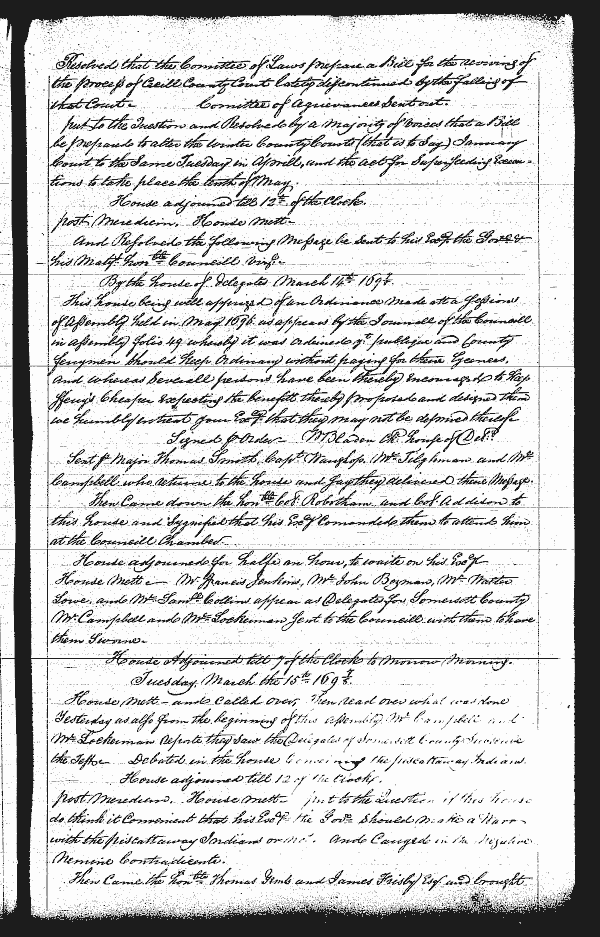 Resolved that the Comittee of Laws prepare a Bill for the reviving of
the process of Cecill County Court lately discontinued by the falling of
that Court. Comittee of Agrievances Sent out.
put to the Question and Resolved by a Majority of Voices that a Bill
be prepared to alter the Winter County Courts (that is to Say) January
Court to the Same Tuesday in Aprill, and the act for Superseeding Execu-
tions to take place the tenth of May.
House adjourned till 12 of the Clock.
post Merediem. House mett
And Resolved the following Message be Sent to his Excy the Govr &
his Majts honble Councill vizt
By the house of delegates March 14th 169
This house being well apprized of an Ordinance made att a Sessions
of Assembly held in May 1695 as appears by the Journall of the Councill
in Assembly folio 49 whereby it was ordained yt publique and County
fferrymen Should keep Ordinary without paying for their Lycences,
And whereas Severall persons have been thereby encouraged to keep
fferrys Cheaper Expecting the benefitt thereby Proposed and designed them
we humbly intreat your Excy that they may not be deprived thereof
Signed p Order W Bladen Clk house of Del:
Sent p Major Thomas Smith, Capt Mr Tilghman and Mr
Campbell who returne to the house and Say they delivered their Message.
Then Came down the honble Col Robotham and Col Addison to
this house and Sygnified that his Excy Comanded them to attend him
at the Councill Chamber
House adjourned for halfe an hour, to waite on his Excy
House Mett Mr ffrancis Jenkins, Mr John Bozman, Mr Matthw
Lowe, and Mr Samll Collins appear as Delegates for Somersett County
Mr Campbell and Mr Lockerman Sent to the Councill with them to have
them Sworne
House Adjourned till 7 of the Clock to Morrow Morning.
Tuesday, March the 15th 169
House mett and Called over, Then read over what was done
Yesterday as also from the beginning of this Assembly. Mr Campbell and
Mr Lockerman reporte they Saw the Delegates of Somersett County Sworne
the Debated in the house Concerning the piscattaway Indians.
House adjourned till 12 of the Clock.
post Meredien. House mett put to the Question if this house
do think it Convenient that his Excy the Govr Should make a Warr
with the piscattaway Indians or no. And Carryed in the Negative
Nemine Contradicente.
Then Came the honble Thomas and James Frisby Esq and brought